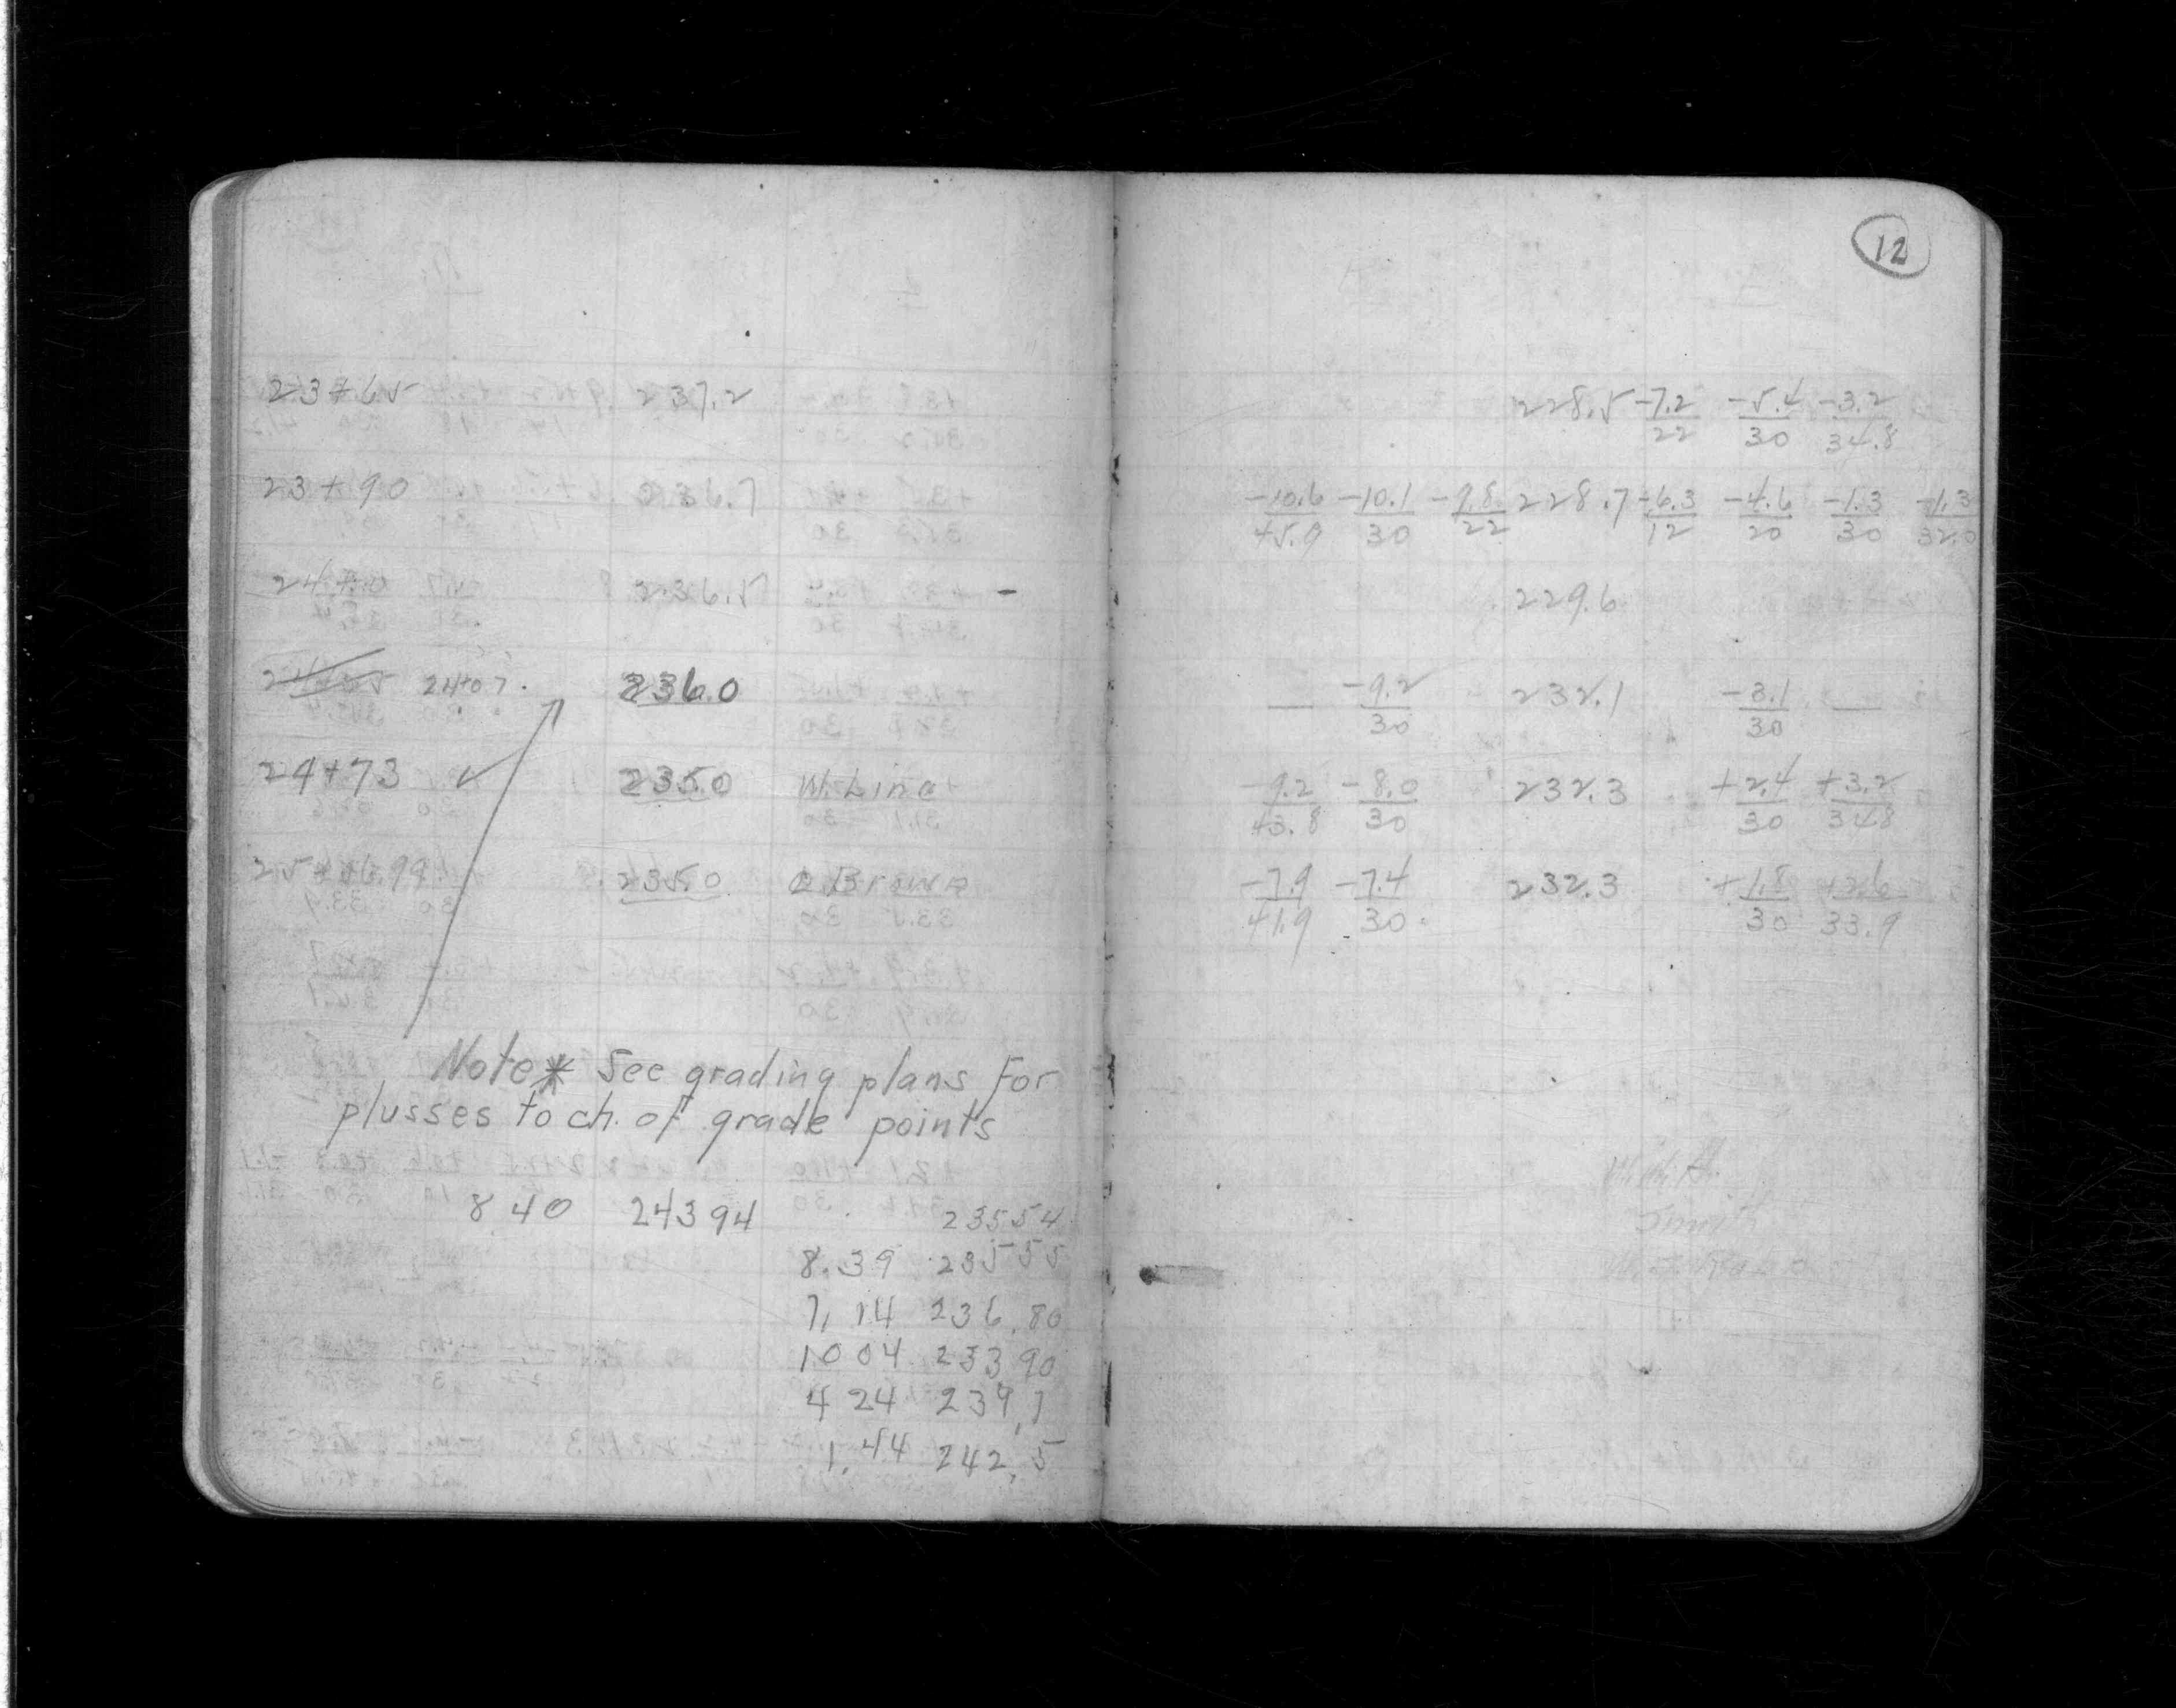 12
23+65 237.2
23+90 236.7
24+10 236.5 -
24+25 24+07. 236.0
24+73 ✓ 235.0 W. Line
235.0 Brown
Note* See grading plans For
plusses to ch. of grade points
8 40 24394 23554
8.39 23555
7,14 236.80
10 04 233 90
4 24 239,7
1.44 242,5
228.5 -7.2/22 -5.4/30 -3.2/34.8
-10.6/45.9 -10.1/30 -9.8/22 228.7 -6.3/12 -4.6/20 -1.3/30 -1.3/32.0
229.6
— -9.2/30 232.1 -3.1/30 —
-9.2/43.8 -8.0/30 232.3 +2.4/30 +3.2/34.8
-7.9/41.9 -7.4/30 232.3 +1.8/30 +2.6/33.9
Smith